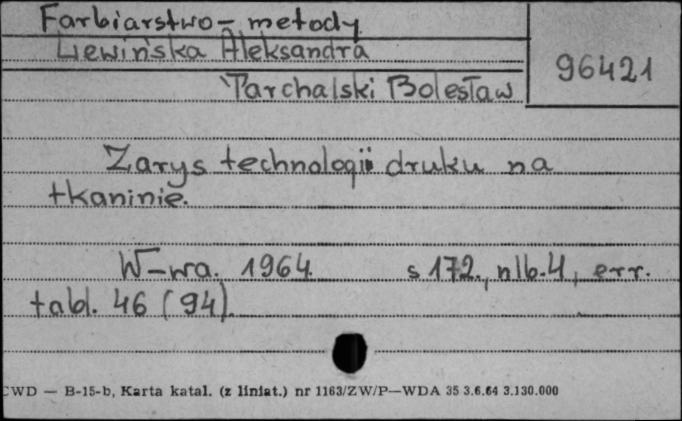 Farbiarstwo - metody
Lewińska Aleksandra
96421
Parchalski Bolesław
Zarys technologii druku na
tkaninie.
W-wa. 1964. s 172., nlb. 4, err.
tabl. 46 (94).
CWD — B-15-b, Karta katal. (z liniat.) nr 1163/ZW/P—WDA 35 3.6.64 3.130.000